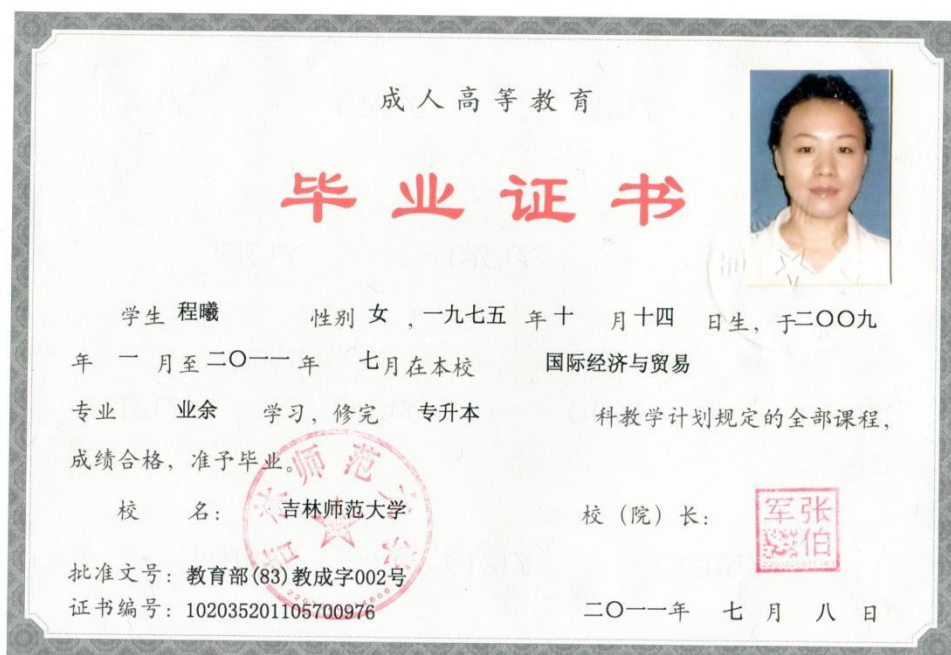 成人高等教育
毕业证书
学生 程曦 性别 女 ，一九七五 年 十 月 十四 日生，于二〇〇九
年 一 月至 二〇一一 年 七月在本校 国际经济与贸易
专业 业余 学习，修完 专升本 科教学计划规定的全部课程，
成绩合格，准予毕业。
校 名： 吉林师范大学 校（院）长：
张伯军
吉林师范大学
批准文号：教育部(83)教成字002号
证书编号：102035201105700976 二〇一一年 七 月 八 日